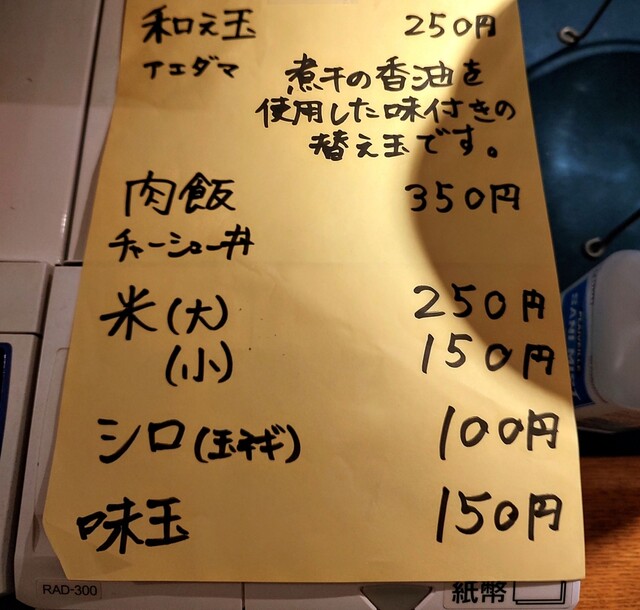 和え玉 250円
イエダマ 煮干の香油を
使用した味付きの
替え玉です。
肉飯 350円
チャーシュー丼
米(大) 250円
(小) 150円
シロ(玉ネギ) 100円
味玉 150円
RAD-300 紙幣